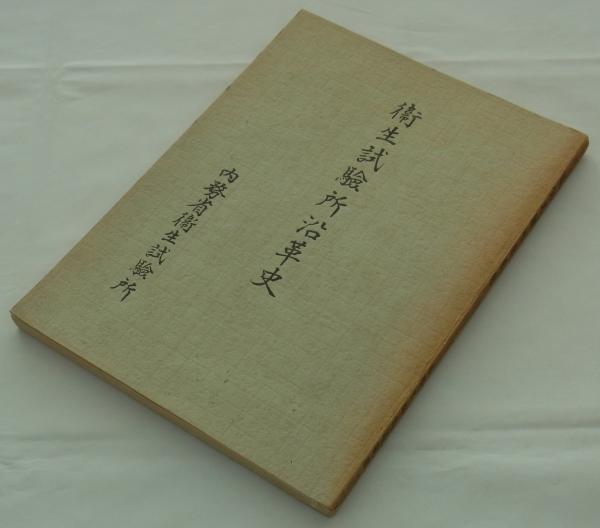 衞生試驗所沿革史
内務省衞生試驗所